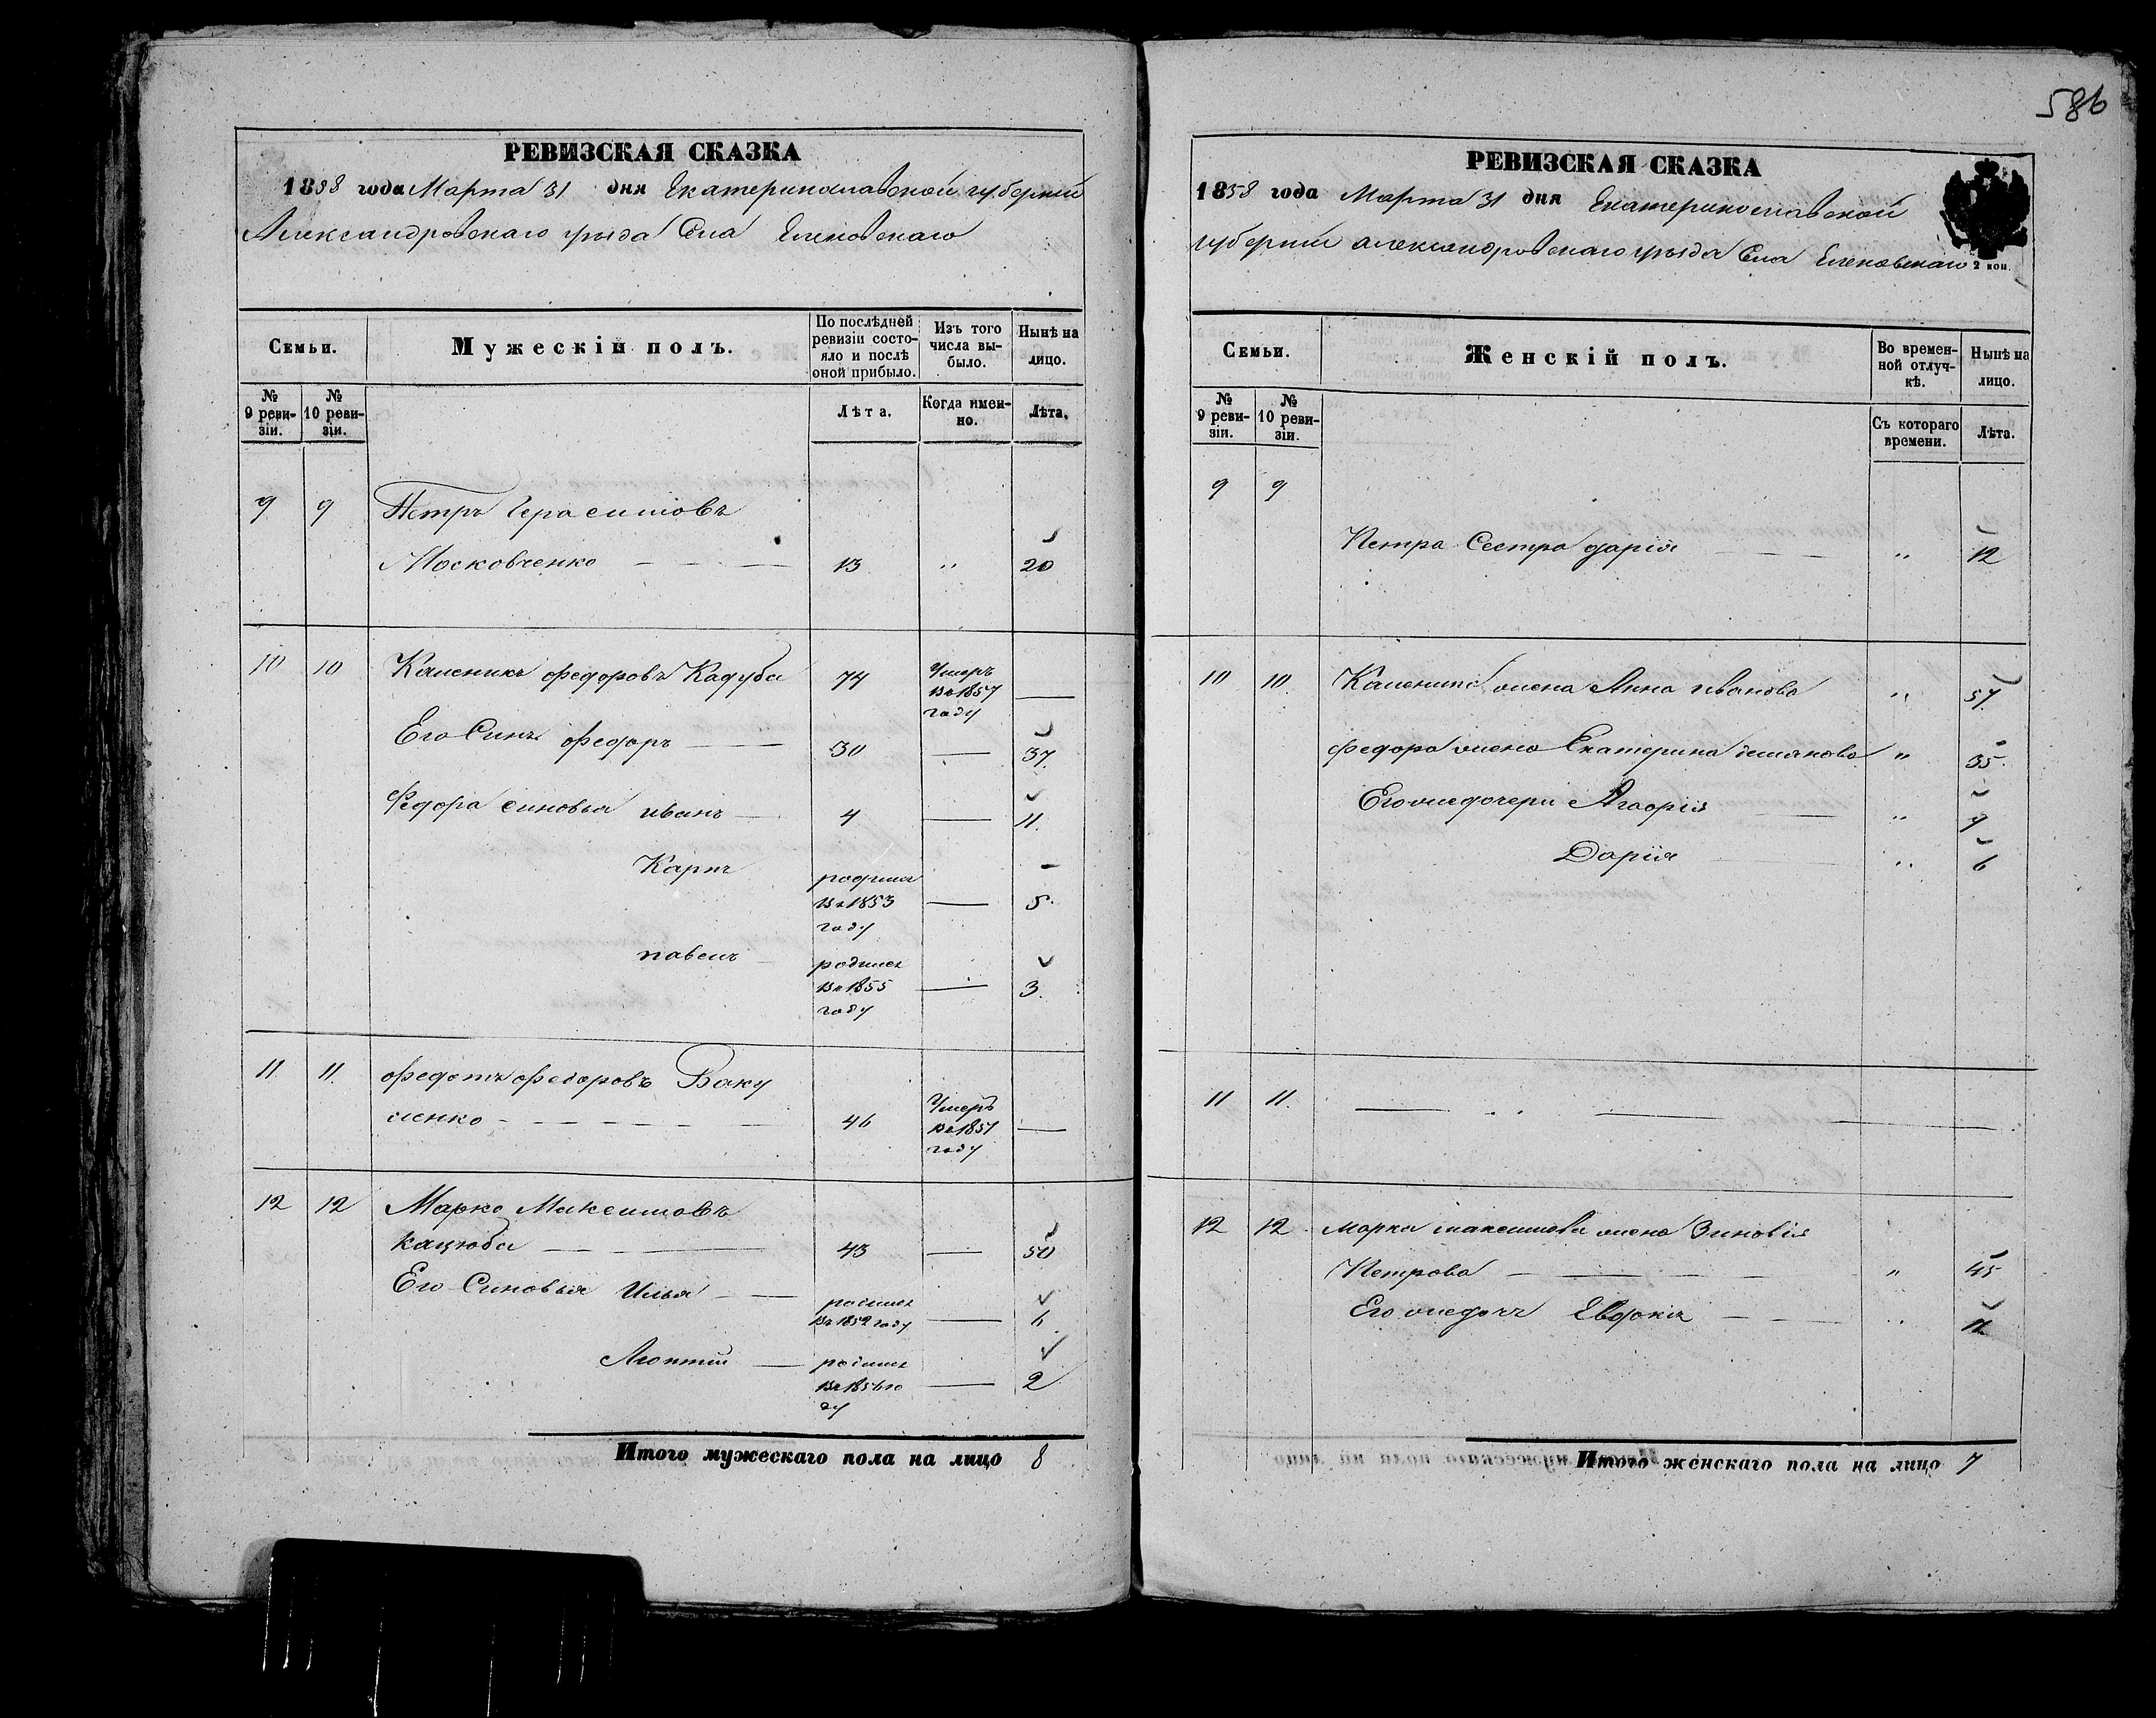 586
РЕВИЗСКАЯ СКАЗКА
1858 года Марта 31 дня Екатеринославской губернии
Александровскаго уезда Села Еленовскаго
Семьи.
Мужескій полъ.
По послѣдней ревизіи состо-
яло и послѣ оной прибыло.
Изъ того числа вы-
было.
Нынѣ на лицо.
№ 9 реви-
зіи.
№ 10 реви-
зіи.
Лѣта.
Когда имен-
но.
Лѣта.
9 9 Петръ Герасимовъ
Московченко 13 " 20
10 10 Каленикъ федоровъ Кадуба 74 Умеръ
въ 1857
году
Его Синъ федоръ 30 — 37.
Федора синовья иванъ 4 — 11.
Карпъ родился
въ 1853 — 5.
году
павелъ родился
въ 1855 — 3.
году
11. 11. федотъ федоровъ Баку
ленко 46 Умеръ
въ 1851 —
году
12 12 Марко Максимовъ
кацюба 43 — 50
Его Синовья Илья родился
въ 1852 году — 6
родился
въ 1856 го — 2
ду
Итого мужескаго пола на лицо 8
РЕВИЗСКАЯ СКАЗКА
1858 года Марта 31 дня Екатеринославской
губернии александровскаго уезда Села Еленовскаго
2 коп.
Семьи.
Женскій полъ.
Во времен-
ной отлуч-
кѣ.
Нынѣ на лицо.
№ 9 реви-
зіи.
№ 10 реви-
зіи.
Съ котораго времени.
Лѣта.
9 9
Петра Сестра дарія " 12
10 10. Каленика жена Анна иванова " 57.
федора жена Екатерина " 35.
Его же дочери "
Дарія " 6
11 11. — " —
12 12. марка максимова жена Зиновія
Петрова " 45
Его же дочь Евдокія "
Итого женскаго пола на лицо 7